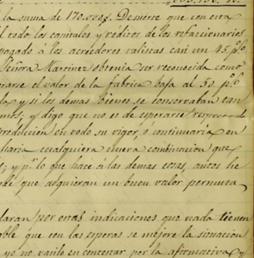 la suma de 170.
Demere que con esta
el todo los capitales y reditos de los refaccionarios
pagado á los acredores valistas casi un 25 p%
Señora Martinez obtenia ser reconocida como
el valor de la fabrica baja al 50 p%
y si los demas bienes se conservaban
y digo que no es de esperarse
produccion en todo su vigor, ó continuaria en
cualquiera nueva combinacion que
y p.r lo que hace á las demas cosas, antes
de que adquieran un buen valor permuta
por estas indicaciones que nada tienen
que con las esperas se mejore la situacion
yo no vacilo en contestar por la afirmativa y